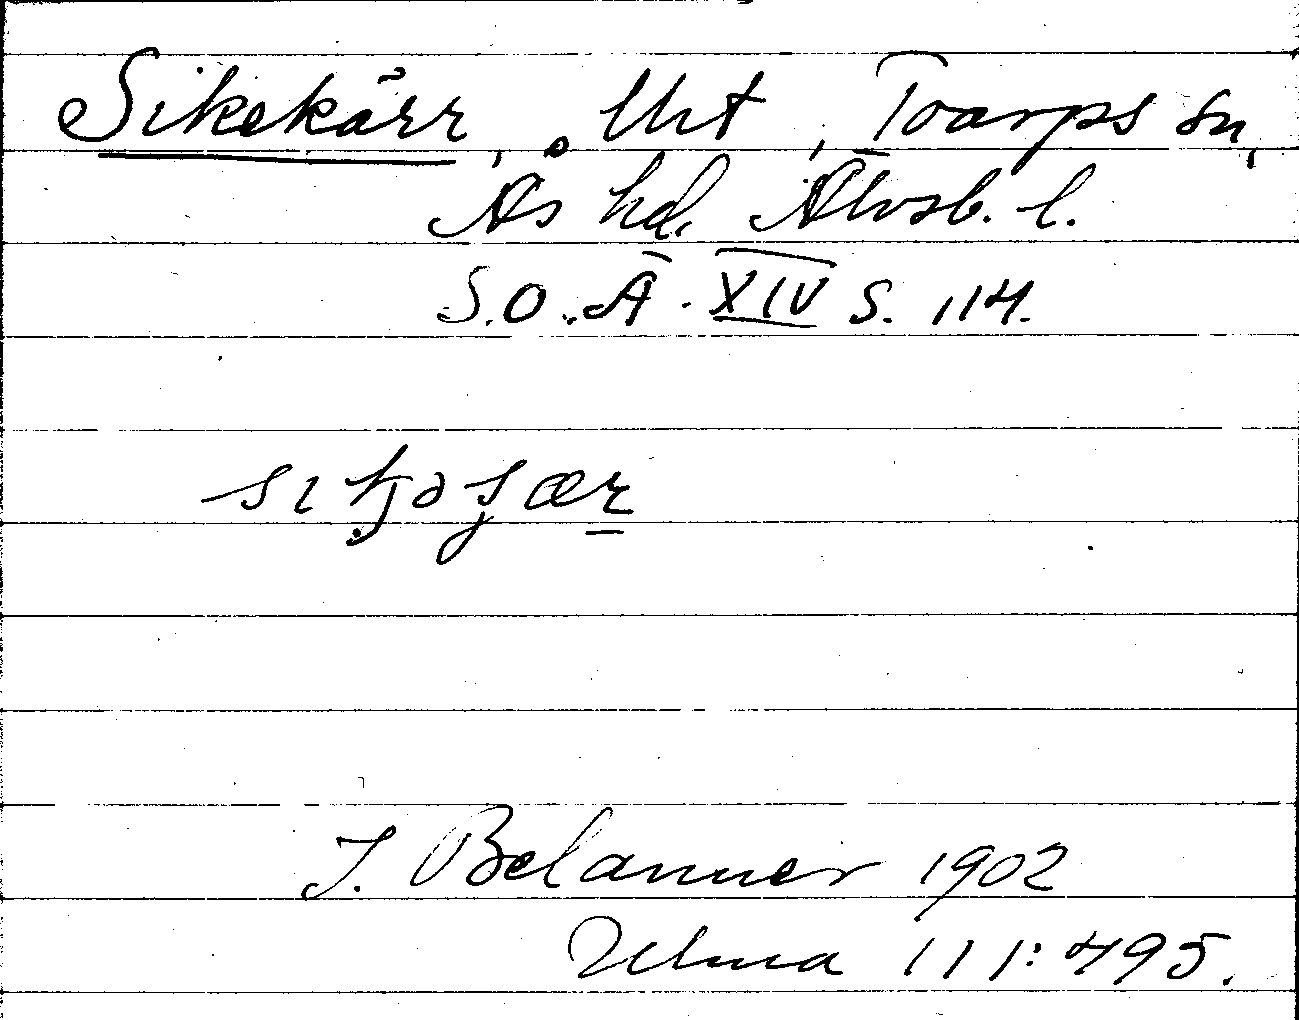 Sikekärr, Uct, Toarps sn,
Ås hd, Älvsb. l.
S.O.Ä. XIV S. 114.
J. Belanner 1902
Ulma 111:495.